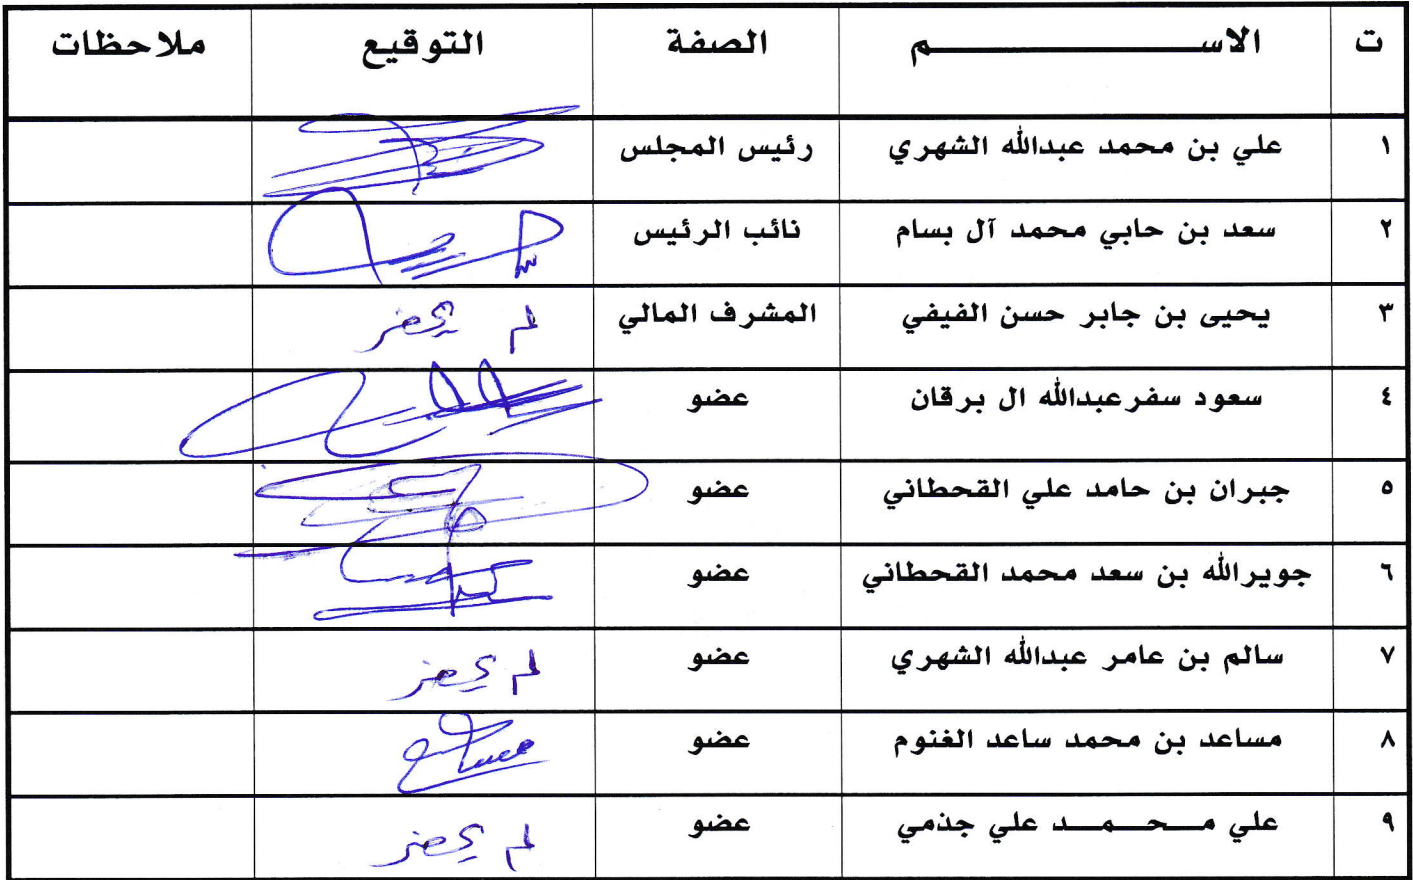 ت الاســــم الصفة التوقيع ملاحظات
١ علي بن محمد عبدالله الشهري رئيس المجلس
٢ سعد بن حابي محمد آل بسام نائب الرئيس
٣ يحيى بن جابر حسن الفيفي المشرف المالي لم يحضر
٤ سعود سفرعبدالله ال برقان عضو
٥ جبران بن حامد علي القحطاني عضو
٦ جويرالله بن سعد محمد القحطاني عضو
٧ سالم بن عامر عبدالله الشهري عضو لم يحضر
٨ مساعد بن محمد ساعد الغنوم عضو
٩ علي مـــحـــمـــد علي جذمي عضو لم يحضر